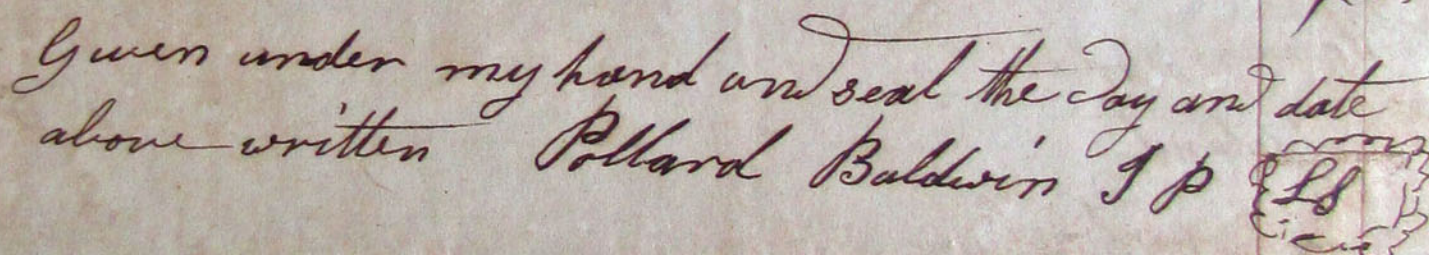 Given under my hand and seal the day and date
above written Pollard Baldwin J P LS